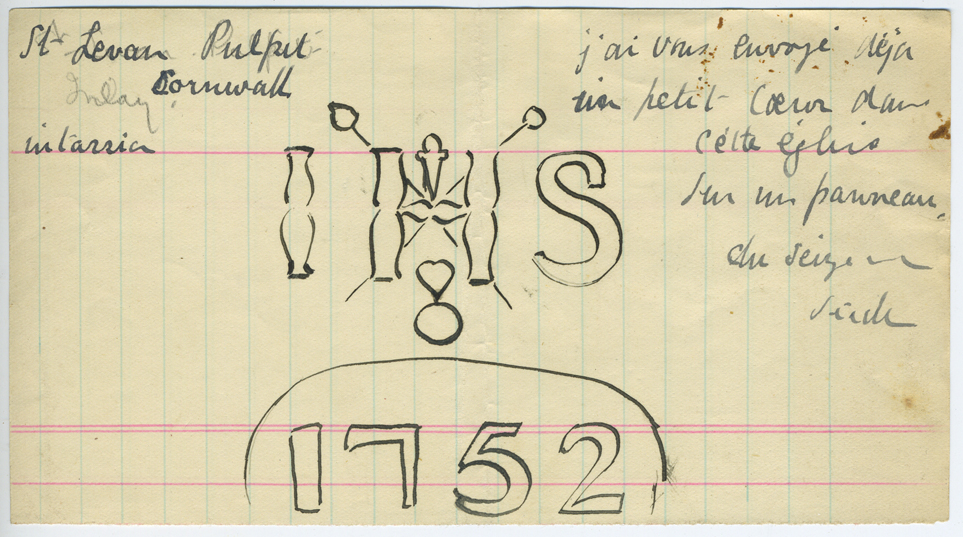 St Levan Pulpit
Cornwall
Inlay
intarsia
j'ai vous envoyé déja
un petit Cœur dans
cette église
Sur un panneau
du seizième
siècle
IHS
1752